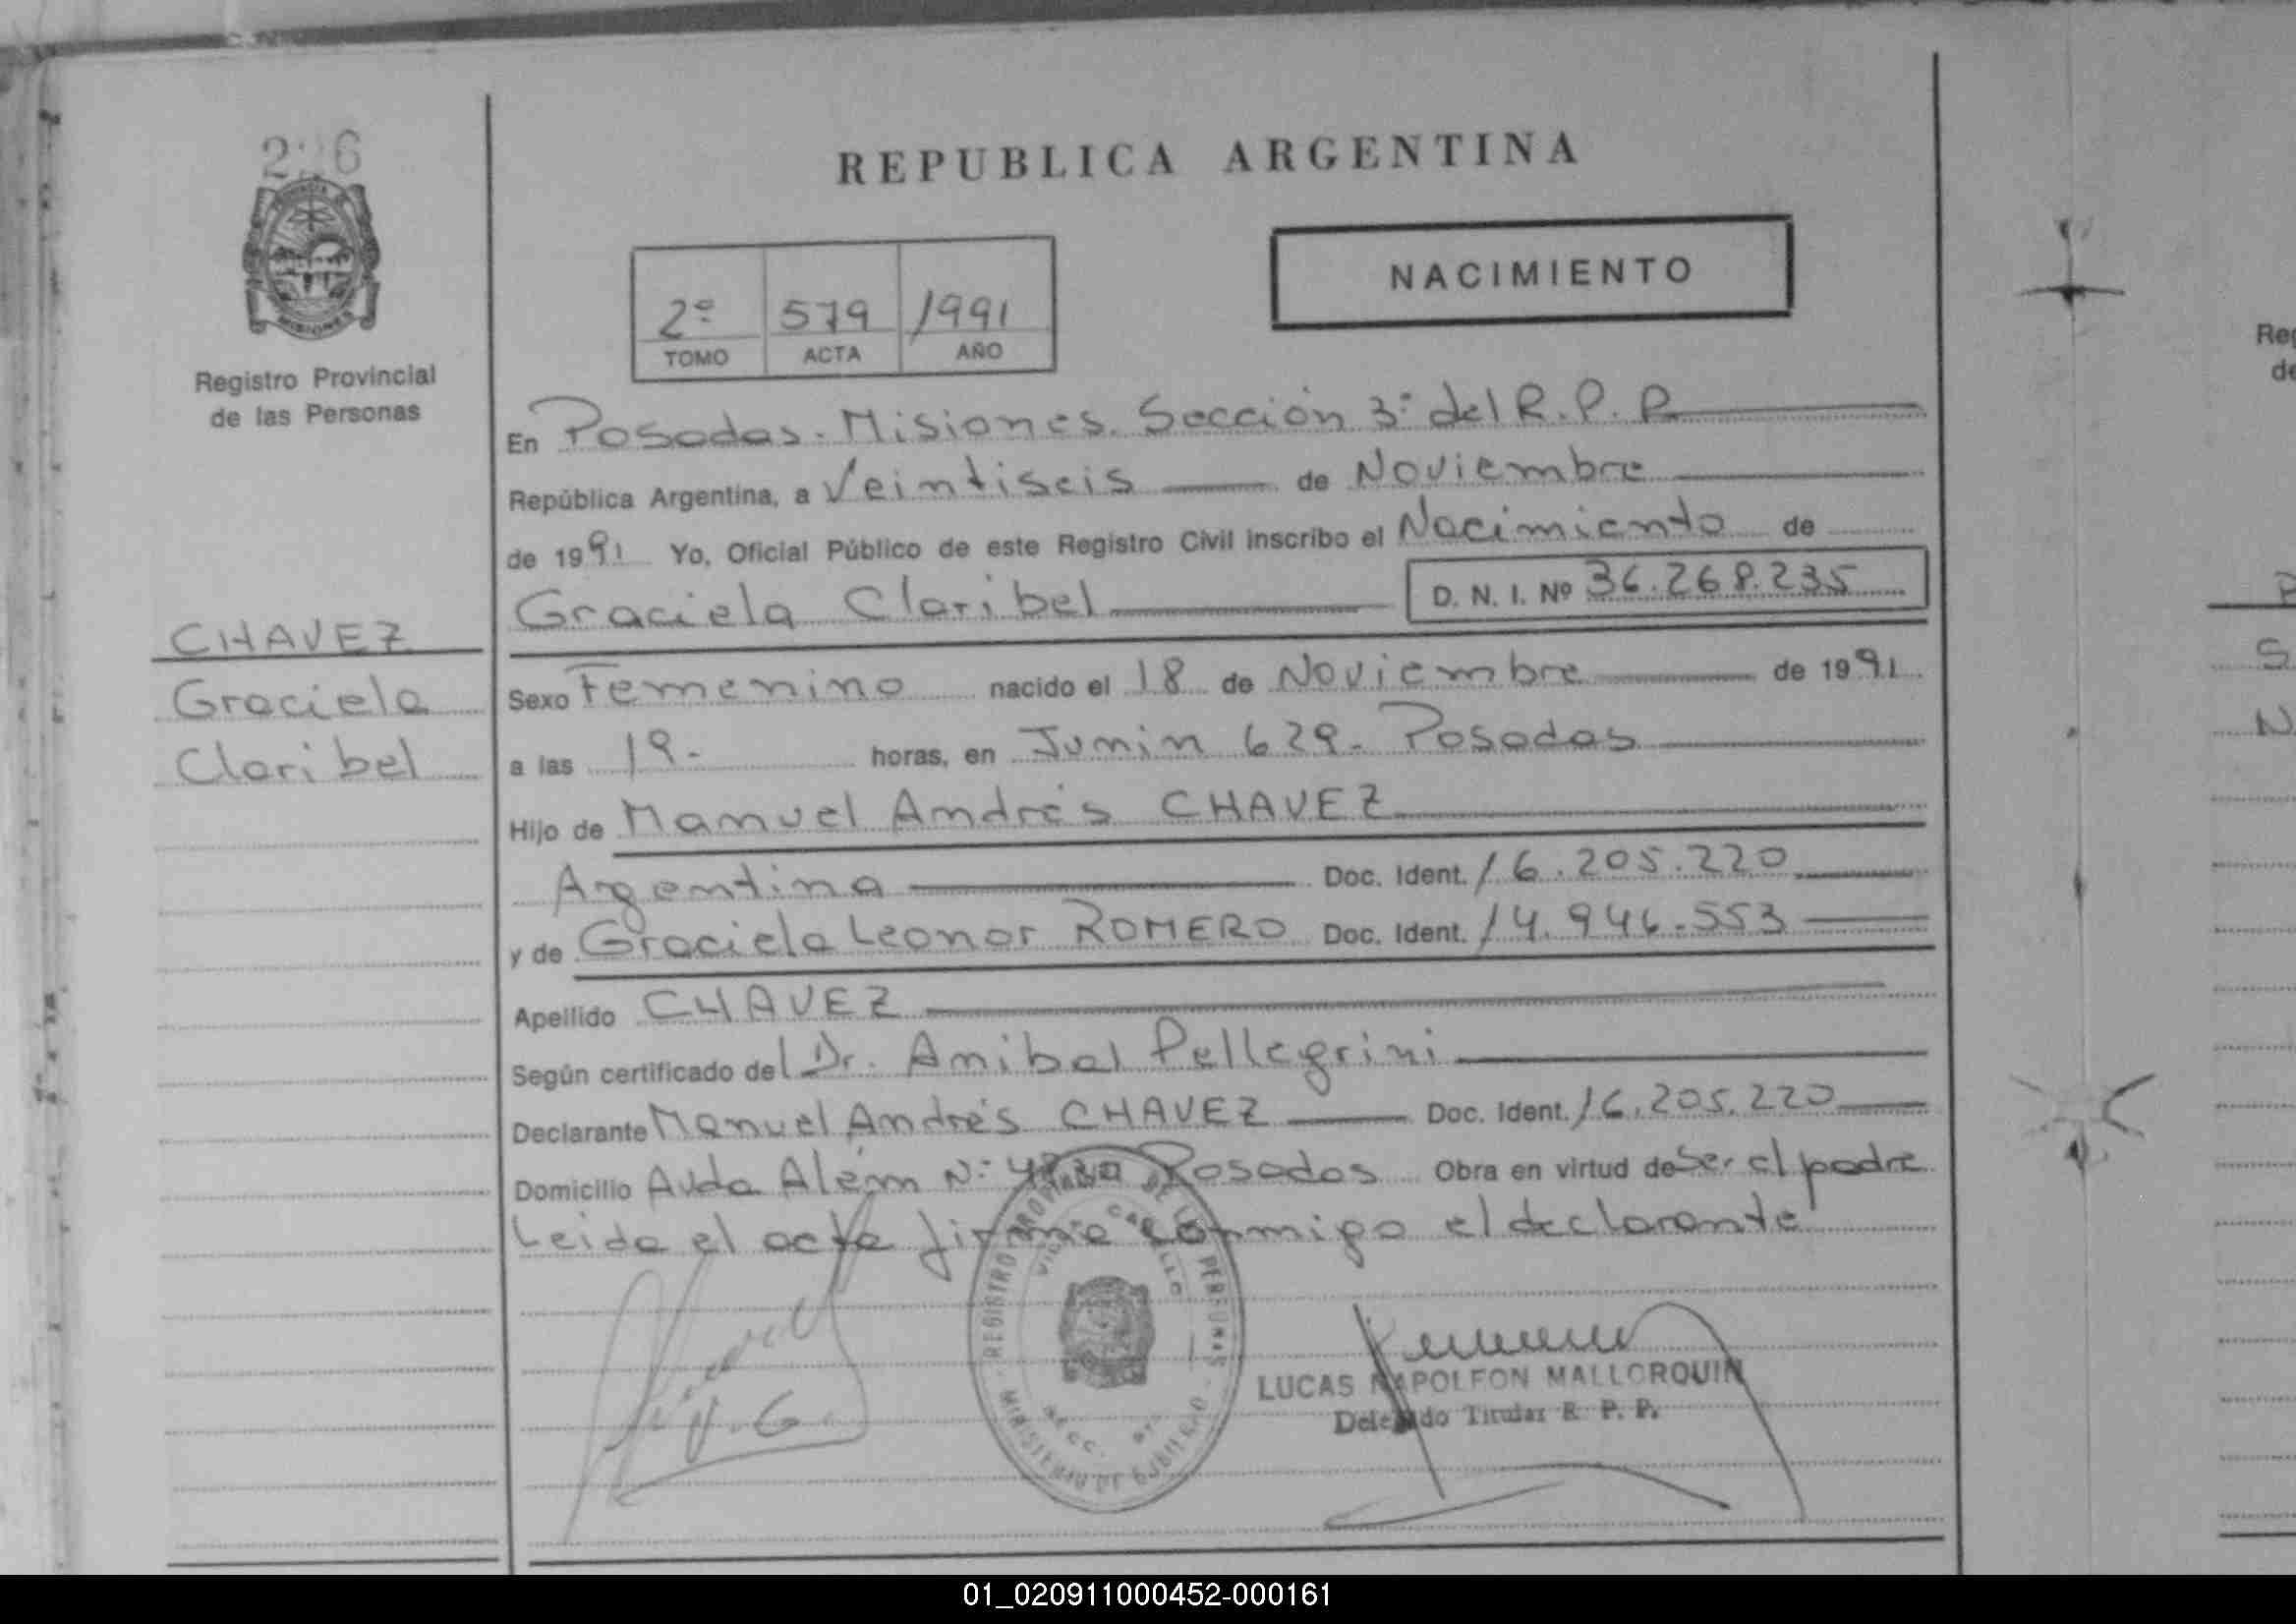 REPUBLICA ARGENTINA
MISIONES
Registro Provincial
de las Personas
2º 579 1991
TOMO ACTA AÑO
NACIMIENTO
En Posadas. Misiones. Sección 3ª del R.P.P.
República Argentina, a Veintiseis de Noviembre
de 1991 Yo, Oficial Público de este Registro Civil inscribo el Nacimiento de
Graciela Claribel D. N. I. Nº 36.268.235
CHAVEZ
Graciela
Claribel
Sexo Femenino nacido el 18 de Noviembre de 1991
a las 19.- horas, en Junin 629- Posadas
Hijo de Manuel Andrés CHAVEZ
Argentina Doc. Ident. 16.205.220
y de Graciela Leonor ROMERO Doc. Ident. 14.946.553
Apellido CHAVEZ
Según certificado del Dr. Anibal Pellegrini
Declarante Manuel Andrés CHAVEZ Doc. Ident. 16.205.220
Domicilio Avda Alem Nº Posadas Obra en virtud de Ser el padre
Leida el acta firma conmigo el declarante
REGISTRO PROVINCIAL DE LAS PERSONAS
SECC.
LUCAS NAPOLEON MALLORQUIN
Delegado Titular R. P. P.
01_020911000452-000161